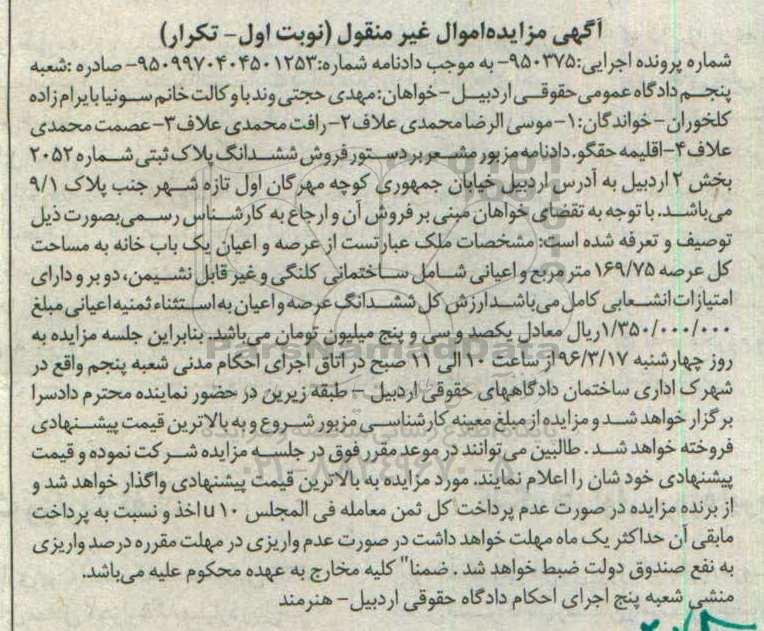 آگهی مزایده‌اموال غیر منقول (نوبت اول- تکرار)
شماره پرونده اجرایی:۹۵۰۳۷۵- به موجب دادنامه شماره:۹۵۰۹۹۷۰۴۰۴۵۰۱۲۵۳- صادره :شعبه
پنجم دادگاه عمومی حقوقی اردبیل - خواهان: مهدی حجتی وند با وکالت خانم سونیا بایرام زاده
کلخوران- خواندگان: ۱- موسی الرضا محمدی علاف ۲- رافت محمدی علاف ۳- عصمت محمدی
علاف ۴- اقلیمه حقگو. دادنامه مزبور مشعر بر دستور فروش ششدانگ پلاک ثبتی شماره ۲۰۵۲
بخش ۲ اردبیل به آدرس اردبیل خیابان جمهوری کوچه مهرگان اول تازه شهر جنب پلاک ۹/۱
می باشد. با توجه به تقضای خواهان مبنی بر فروش آن و ارجاع به کارشناس رسمی بصورت ذیل
توصیف و تعرفه شده است: مشخصات ملک عبارتست از عرصه و اعیان یک باب خانه به مساحت
کل عرصه ۱۶۹/۷۵ متر مربع و اعیانی شامل ساختمانی کلنگی و غیر قابل نشیمن، دو بر و دارای
امتیازات انشعابی کامل می باشد ارزش کل ششدانگ عرصه و اعیان به استثناء ثمنیه اعیانی مبلغ
۱/۳۵۰/۰۰۰/۰۰۰ریال معادل یکصد و سی و پنج میلیون تومان می‌باشد. بنابراین جلسه مزایده به
روز چهارشنبه ۹۶/۳/۱۷ از ساعت ۱۰ الی ۱۱ صبح در اتاق اجرای احکام مدنی شعبه پنجم واقع در
شهرک اداری ساختمان دادگاههای حقوقی اردبیل - طبقه زیرین در حضور نماینده محترم دادسرا
برگزار خواهد شد و مزایده از مبلغ معینه کارشناسی مزبور شروع و به بالاترین قیمت پیشنهادی
فروخته خواهد شد . طالبین می توانند در موعد مقرر فوق در جلسه مزایده شرکت نموده و قیمت
پیشنهادی خود شان را اعلام نمایند. مورد مزایده به بالاترین قیمت پیشنهادی واگذار خواهد شد و
از برنده مزایده در صورت عدم پرداخت کل ثمن معامله فی المجلس ۱۰ u اخذ و نسبت به پرداخت
مابقی آن حداکثر یک ماه مهلت خواهد داشت در صورت عدم واریزی در مهلت مقرره درصد واریزی
به نفع صندوق دولت ضبط خواهد شد . ضمنا" کلیه مخارج به عهده محکوم علیه می‌باشد.
منشی شعبه پنج اجرای احکام دادگاه حقوقی اردبیل- هنرمند
ParsNamadData